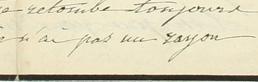 retombe toujours
n'ai pas un rayon